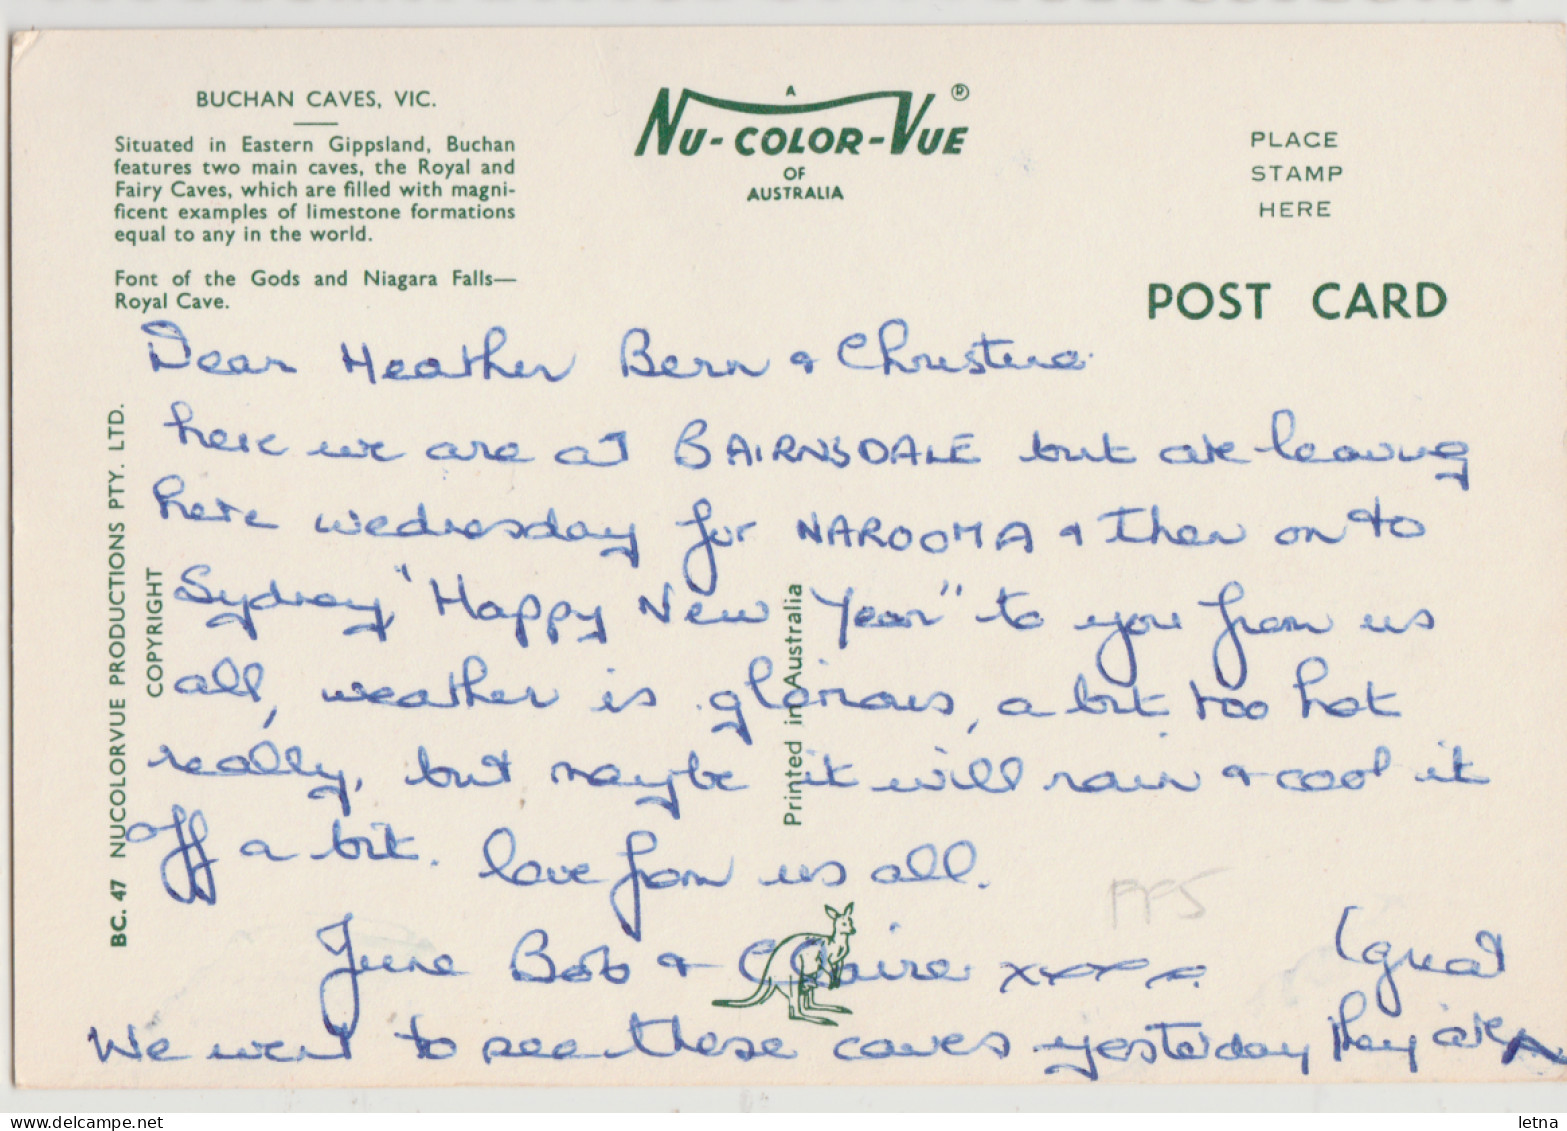 BUCHAN CAVES, VIC.
Situated in Eastern Gippsland, Buchan
features two main caves, the Royal and
Fairy Caves, which are filled with magni-
ficent examples of limestone formations
equal to any in the world.
Font of the Gods and Niagara Falls—
Royal Cave.
A
NU-COLOR-VUE ®
OF
AUSTRALIA
PLACE
STAMP
HERE
POST CARD
BC. 47 NUCOLORVUE PRODUCTIONS PTY. LTD.
COPYRIGHT
Printed in Australia
Dear Heather Bern & Christine
here we are at BAIRNSDALE but are leaving
here wednesday for NAROOMA & then on to
Sydney, "Happy New Year" to you from us
all, weather is glorious, a bit too hot
really, but maybe it will rain & cool it
off a bit. love from us all.
June Bob & Claire xxxxx.
We went to see these caves yesterday they are
(great
PPS
letna
delcampe.net